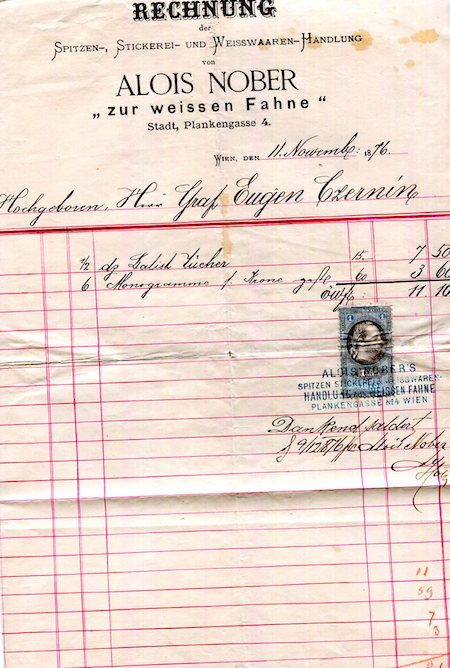 RECHNUNG
der
SPITZEN-, STICKEREI- UND WEISSWAAREN-HANDLUNG
von
ALOIS NOBER
„zur weissen Fahne“
Stadt, Plankengasse 4.
WIEN, DEN 11. Novemb: 1876.
Hochgeboren, Herr Graf Eugen Czernin
½ dz Batist Tücher 15. 7 50
6 Monogramme f. Krone 60 3 60
11. 10
1 1
ALOIS NOBER'S
SPITZEN STICKEREI & WEISSWAREN-
HANDLUNG ZUR WEISSEN FAHNE
PLANKENGASSE No 4 WIEN
Dankend saldirt
Alois Nober
11
59
7
3